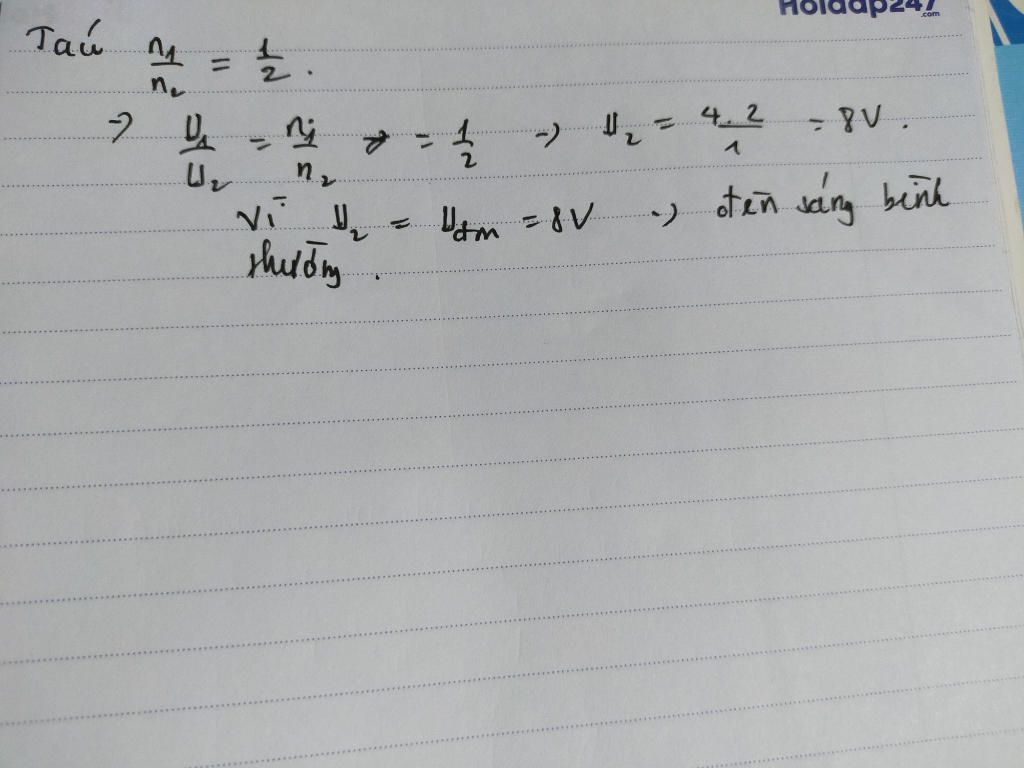 Hoidap247.com
Ta có n1/n2 = 1/2.
=> U1/U2 = n1/n2 = 1/2 => U2 = 4.2/1 = 8V.
Vì U2 = Uđm = 8V => đèn sáng bình
thường.